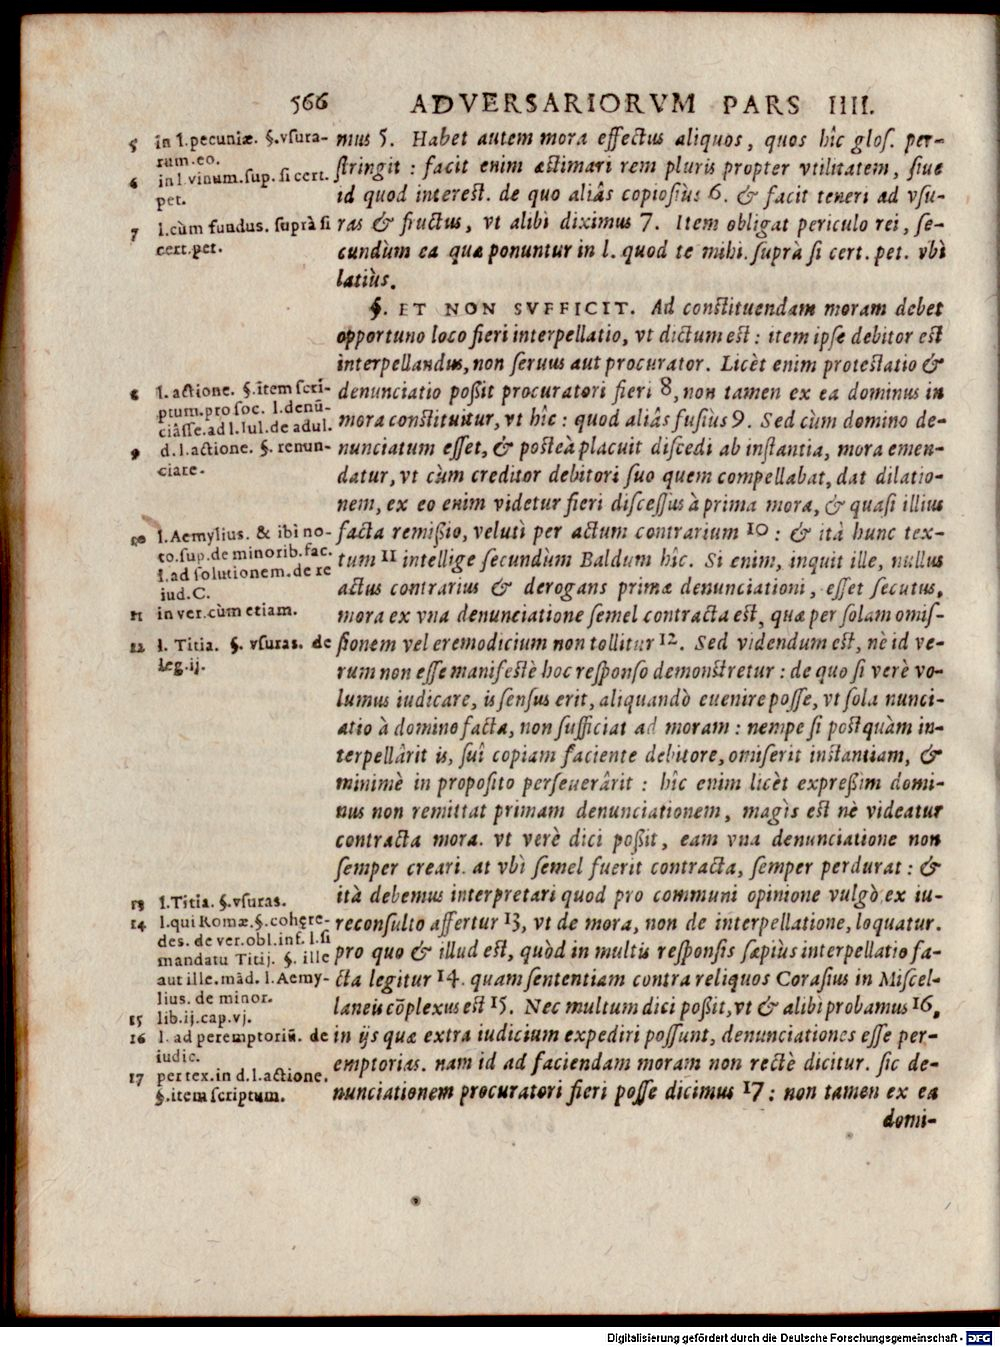 566 ADVERSARIORVM PARS IIII.
mus 5. Habet autem mora effectus aliquos, quos hîc glos. per-
ſtringit : facit enim æstimari rem pluris propter vtilitatem, ſiue
id quod interest. de quo aliâs copioſiùs 6. & facit teneri ad vſu-
ras & fructus, vt alibi diximus 7. Item obligat periculo rei, ſe-
cundùm ea quæ ponuntur in l. quod te mihi. ſuprà ſi cert. pet. vbi
latiùs.
§. ET NON SVFFICIT. Ad constituendam moram debet
opportuno loco fieri interpellatio, vt dictum est : item ipſe debitor est
interpellandus, non ſeruus aut procurator. Licèt enim protestatio &
denunciatio poßit procuratori fieri 8, non tamen ex ea dominus in
mora constituitur, vt hîc : quod aliâs fuſiùs 9. Sed cùm domino de-
nunciatum eſſet, & posteà placuit diſcedi ab instantia, mora emen-
datur, vt cùm creditor debitori ſuo quem compellabat, dat dilatio-
nem, ex eo enim videtur fieri diſceſſus à prima mora, & quaſi illius
facta remißio, veluti per actum contrarium 10 : & ità hunc tex-
tum 11 intellige ſecundùm Baldum hîc. Si enim, inquit ille, nullus
actus contrarius & derogans primæ denunciationi, eſſet ſecutus,
mora ex vna denunciatione ſemel contracta est, quæ per ſolam omiſ-
ſionem vel eremodicium non tollitur 12. Sed videndum est, nè id ve-
rum non eſſe manifestè hoc reſponſo demonstretur : de quo ſi verè vo-
lumus iudicare, is ſenſus erit, aliquandò euenire poſſe, vt ſola nunci-
atio à domino facta, non ſufficiat ad moram : nempe ſi postquàm in-
terpellârit is, ſuî copiam faciente debitore, omiſerit instantiam, &
minimè in propoſito perſeuerârit : hîc enim licèt expreßim domi-
nus non remittat primam denunciationem, magìs est nè videatur
contracta mora. vt verè dici poßit, eam vna denunciatione non
ſemper creari. at vbi ſemel fuerit contracta, ſemper perdurat : &
ità debemus interpretari quod pro communi opinione vulgò ex iu-
reconſulto affertur 13, vt de mora, non de interpellatione, loquatur.
pro quo & illud est, quòd in multis reſponſis ſæpiùs interpellatio fa-
cta legitur 14. quam ſententiam contra reliquos Coraſius in Miſcel-
laneis cõplexus est 15. Nec multum dici poßit, vt & alibi probamus 16,
in ijs quæ extra iudicium expediri poſſunt, denunciationes eſſe per-
emptorias. nam id ad faciendam moram non rectè dicitur. ſic de-
nunciationem procuratori fieri poſſe dicimus 17 : non tamen ex ea
domi-
5 in l.pecuniæ. §.vſura-
rum.eo.
6 in l.vinum.ſup. ſi cert.
pet.
7 l.cùm fundus. ſuprà ſi
cert.pet.
8 l. actione. §.item ſcri-
ptum.pro ſoc. l.denū-
ciâſſe.ad l.Iul.de adul.
9 d.l.actione. §. renun-
ciare.
10 l.Aemylius. & ibi no-
to.ſup.de minorib.fac.
l.ad ſolutionem.de re
iud.C.
11 in ver.cùm etiam.
12 l. Titia. §. vſuras. de
leg.ij.
13 l.Titia. §.vſuras.
14 l.qui Romæ.§.cohęre-
des. de ver.obl.inf. l.ſi
mandatu Titij. §. ille
aut ille.mād. l.Aemy-
lius. de minor.
15 lib.ij.cap.vj.
16 l. ad peremptoriū. de
iudic.
17 per tex.in d.l.actione.
§.item ſcriptum.
Digitalisierung gefördert durch die Deutsche Forschungsgemeinschaft - DFG